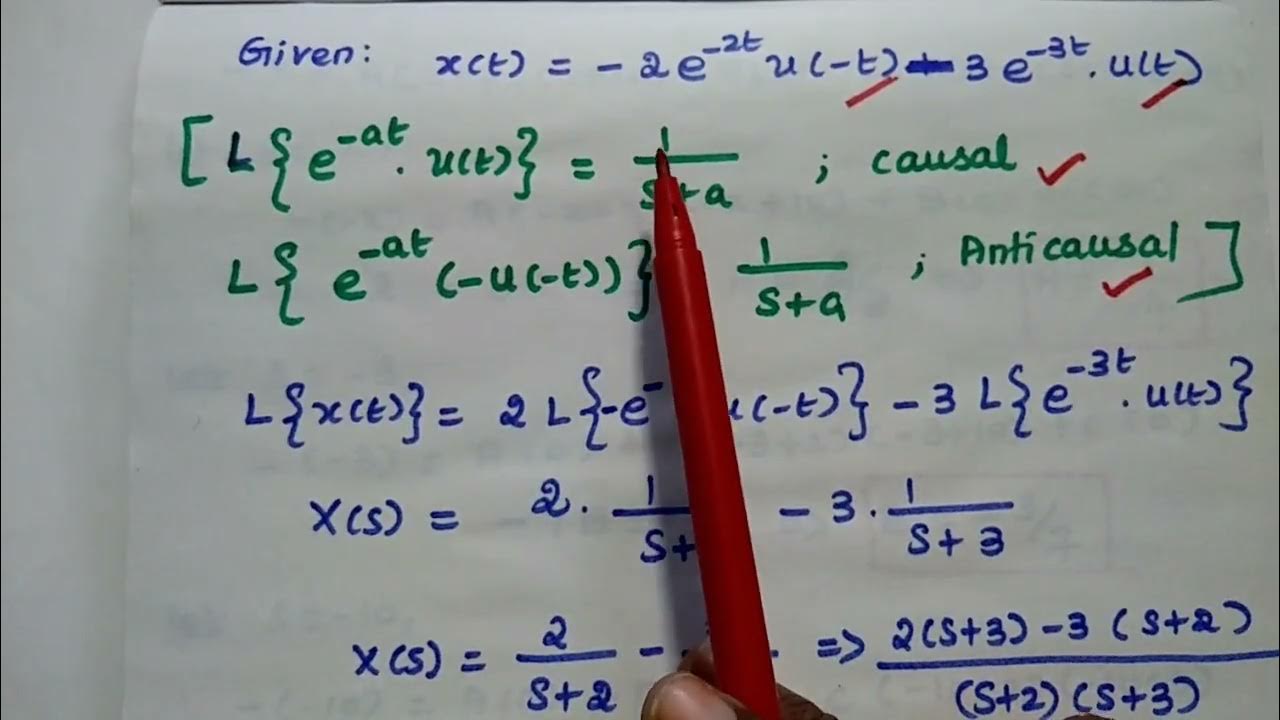 Given: x(t) = - 2 e^{-2t} u(-t) - 3 e^{-3t} . u(t)
[ L { e^{-at} . u(t) } = 1/(s+a) ; causal ✓
L { e^{-at} (-u(-t)) } 1/(s+a) ; Anticausal ] ✓
L{x(t)} = 2 L{-e^{- u(-t)} - 3 L{e^{-3t} . u(t)}
X(s) = 2 . 1/(s+ - 3 . 1/(s+3)
X(s) = 2/(s+2) - => (2(s+3) - 3(s+2))/((s+2)(s+3))